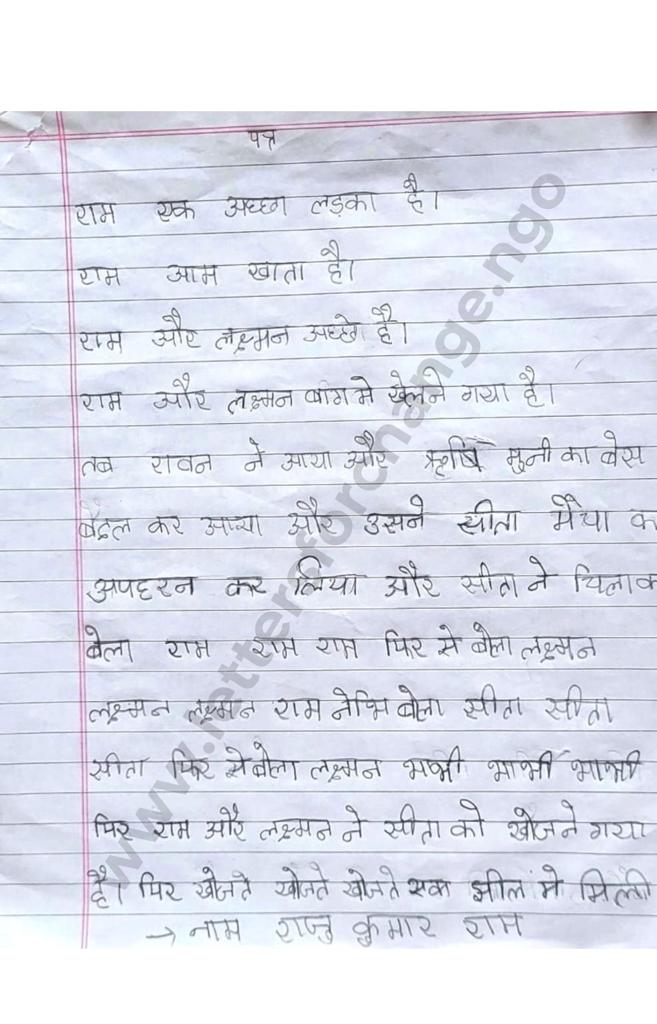 पत्र
राम एक अच्छा लड़का है।
राम आम खाता है।
राम और लक्ष्मन अच्छे है।
राम और लक्ष्मन बाग मे खेलने गया है।
तब रावन ने आया और ऋषि मुनी का बेस
बदल कर आया और उसने सीता मैया क
अपहरन कर लिया और सीता ने चिलाक
बेला राम राम राम फिर से बेला लक्ष्मन
लक्ष्मन लक्ष्मन राम नेभि बेला सीता सीता
सीता फिर से बेला लक्ष्मन भाभी भाभी भाभी
फिर राम और लक्ष्मन ने सीता को खोजने गया
है। फिर खेजते खोजते खोजते एक झील मे मिल्ली
→ नाम राजु कुमार राम
www.lettersforchange.ngo